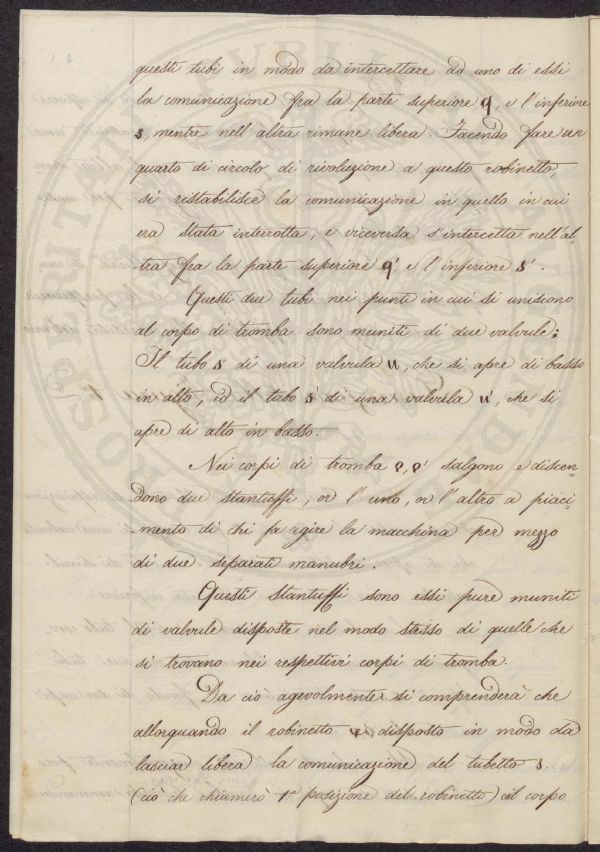 questi tubi in modo da intercettare ad uno di essi
la comunicazione fra la parte superiore q, e l'inferiore
s, mentre nell'altra rimane libera. Facendo fare un
quarto di circolo di rivoluzione a questo robinetto
si ristabilisce la comunicazione in quello in cui
era stata interrotta, e viceversa s'intercetta nell'al
tra fra la parte superiore q' e l'inferiore s'.
Questi due tubi nei punti in cui si uniscono
al corpo di tromba sono muniti di due valvule;
Il tubo s di una valvula u, che si apre di basso
in alto, ed il tubo s' di una valvula u', che si
apre di alto in basso.—
Nei corpi di tromba p, p' salgono e discen=
dono due stantuffi, or l'uno, or l'altro a piaci=
mento di chi fa agire la macchina per mezzo
di due separati manubri.
Questi stantuffi sono essi pure muniti
di valvule disposte nel modo stesso di quelle che
si trovano nei respettivi corpi di tromba.
Da ciò agevolmente si comprenderà che
allorquando il robinetto disposto in modo da
lasciar libera la comunicazione del tubetto s.
(ciò che chiamerò 1a posizione del robinetto) col corpo